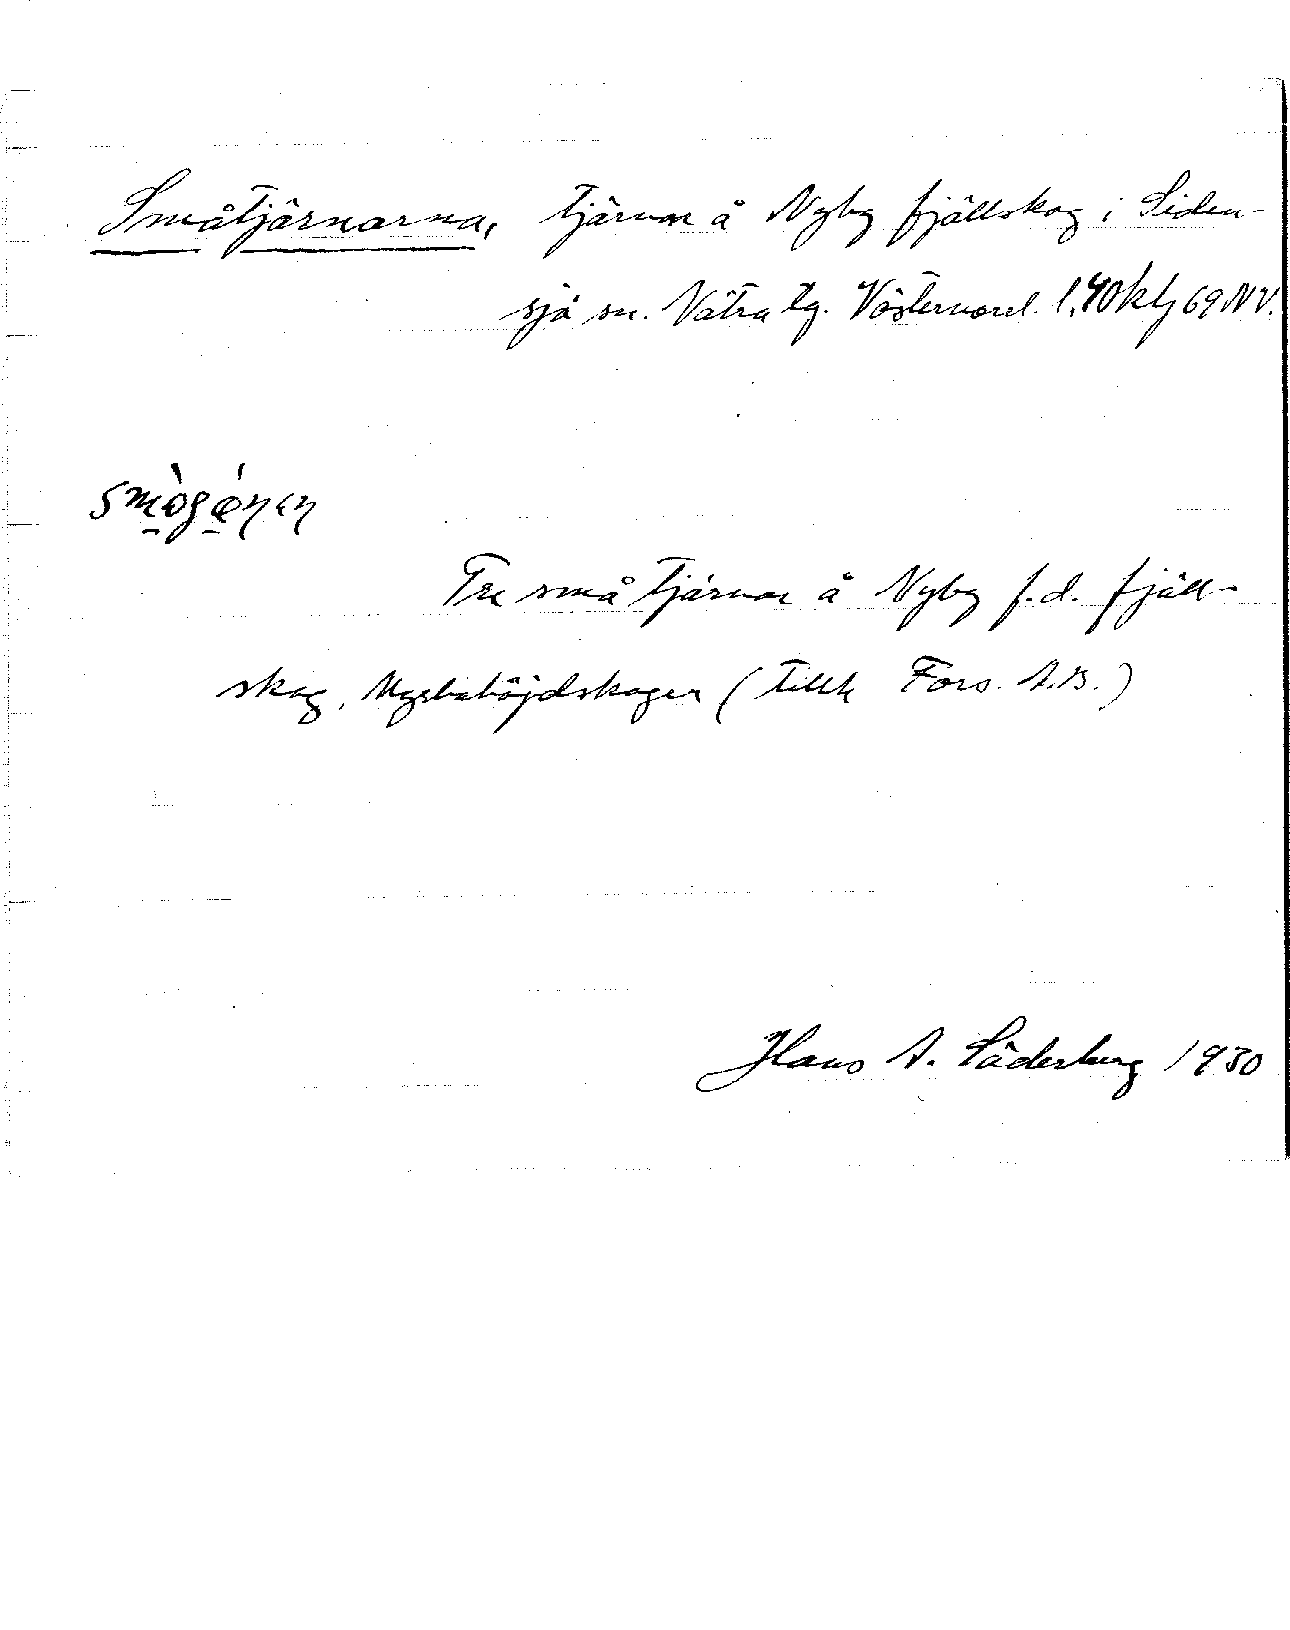 Småtjärnarna, tjärnar å Nyby fjällskog i Siden-
sjö sn. Nätra tg. Västernorrl. l. 40 kbl 69 NV.
smògǿηεη
Tre små tjärnar å Nyby f.d. fjäll-
skog, (tillh Fors. A.B.)
Hans A. Söderberg 1930